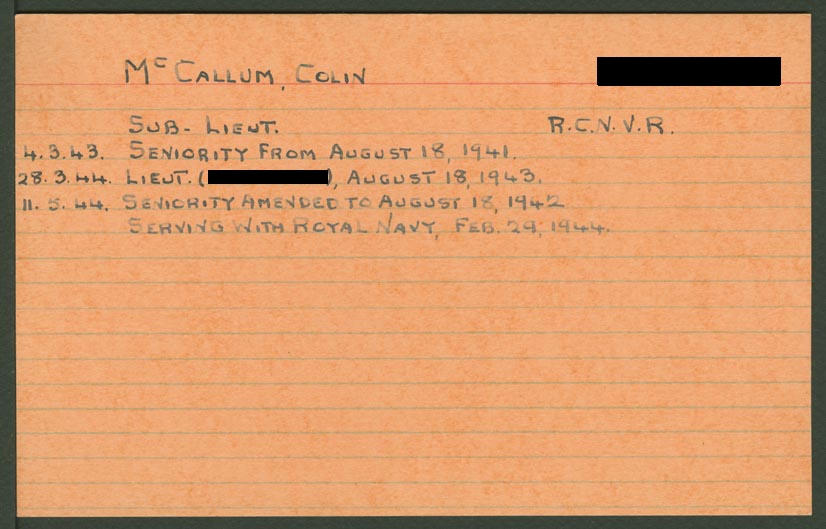 McCALLUM, COLIN
SUB-LIEUT. R.C.N.V.R.
4.3.43. SENIORITY FROM AUGUST 18, 1941.
28.3.44. LIEUT. ( ), AUGUST 18, 1943.
11.5.44. SENIORITY AMENDED TO AUGUST 18, 1942
SERVING WITH ROYAL NAVY, FEB. 29, 1944.